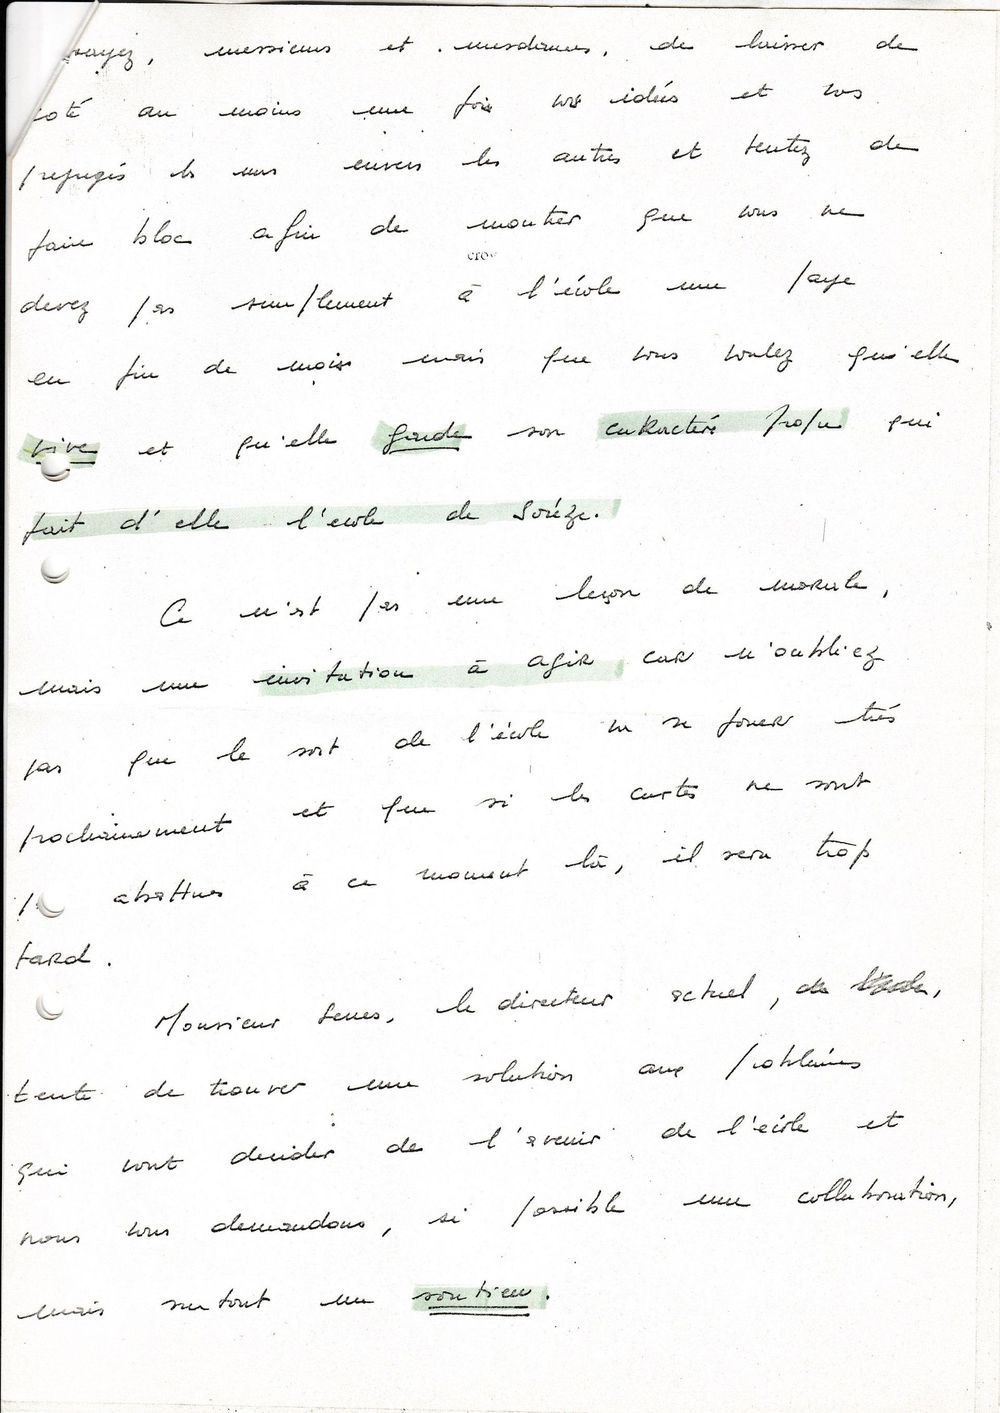 messieurs et mesdames, de laisser de
au moins une fois vos idées et vos
préjugés les uns envers les autres et tentez de
faire bloc afin de montrer que vous ne
cro
devez pas simplement à l'école une paye
en fin de mois mais que vous voulez qu'elle
vive et qu'elle garde son caractère propre qui
fait d'elle l'école de Sorèze.
Ce n'est pas une leçon de morale,
mais une invitation à agir car n'oubliez
pas que le sort de l'école va se jouer très
prochainement et que si les cartes ne sont
abattues à ce moment là, il sera trop
tard.
Monsieur le directeur actuel, de
tente de trouver une solution aux problèmes
qui vont décider de l'avenir de l'école et
nous vous demandons, si possible une collaboration,
mais surtout un soutien.